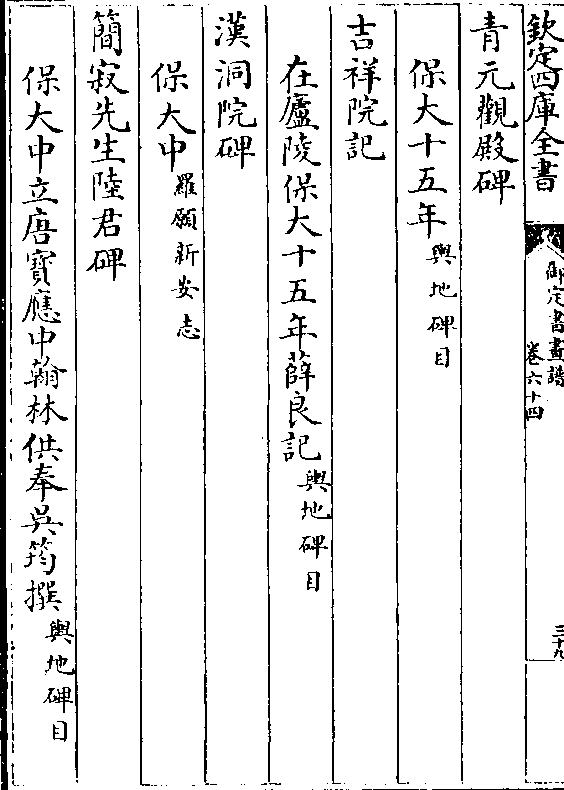 欽定四庫全書
御定書畫譜
卷六十四
三十九
青元觀殿碑
保大十五年輿地碑目
吉祥院記
在廬陵保大十五年薛良記輿地碑目
漢洞院碑
保大中羅願新安志
簡寂先生陸君碑
保大中立唐寶應中翰林供奉吳筠撰輿地碑目